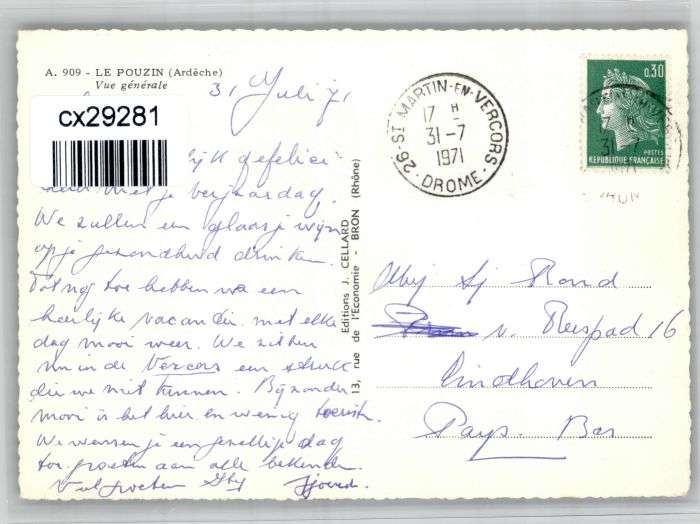 A. 909 - LE POUZIN (Ardèche)
Vue générale
31 Juli 71
cx29281
gefelici
met je verjaardag.
We zullen een glaasje wijn
op je gezondheid drinken.
Tot nog toe hebben we een
heerlijke vacantie, met elke
dag mooi weer. We zitten
nu in de Vercors een streek
die we niet kennen. Bijzonder
mooi is het hier en weinig toeristen.
We wensen je een gezellige dag
toe, groeten aan alle bekenden.
Veel groeten Sjoerd
Editions J. CELLARD
13, rue de l'Economie - BRON (Rhône)
26 - ST MARTIN-EN-VERCORS
17 H
31-7
1971
DROME
0,30
POSTES
REPUBLIQUE FRANÇAISE
v. Reespad 16
Eindhoven
Pays-Bas